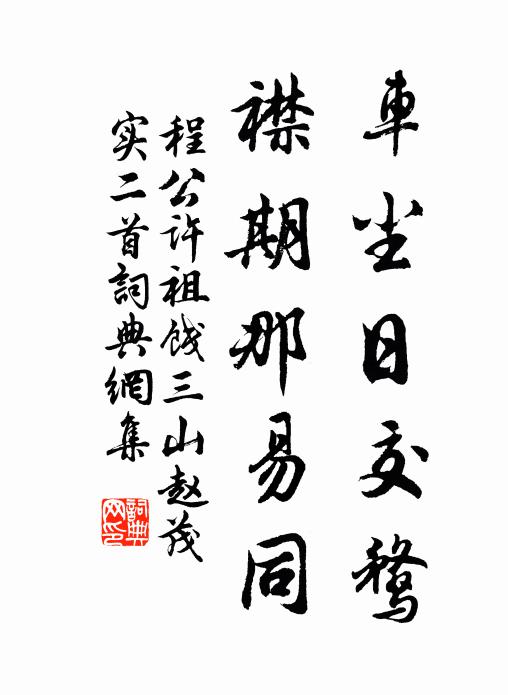 車尘日交鶩
襟期那易同
程公许祖饯三山赵茂
实二首詞典網集
詞典网印